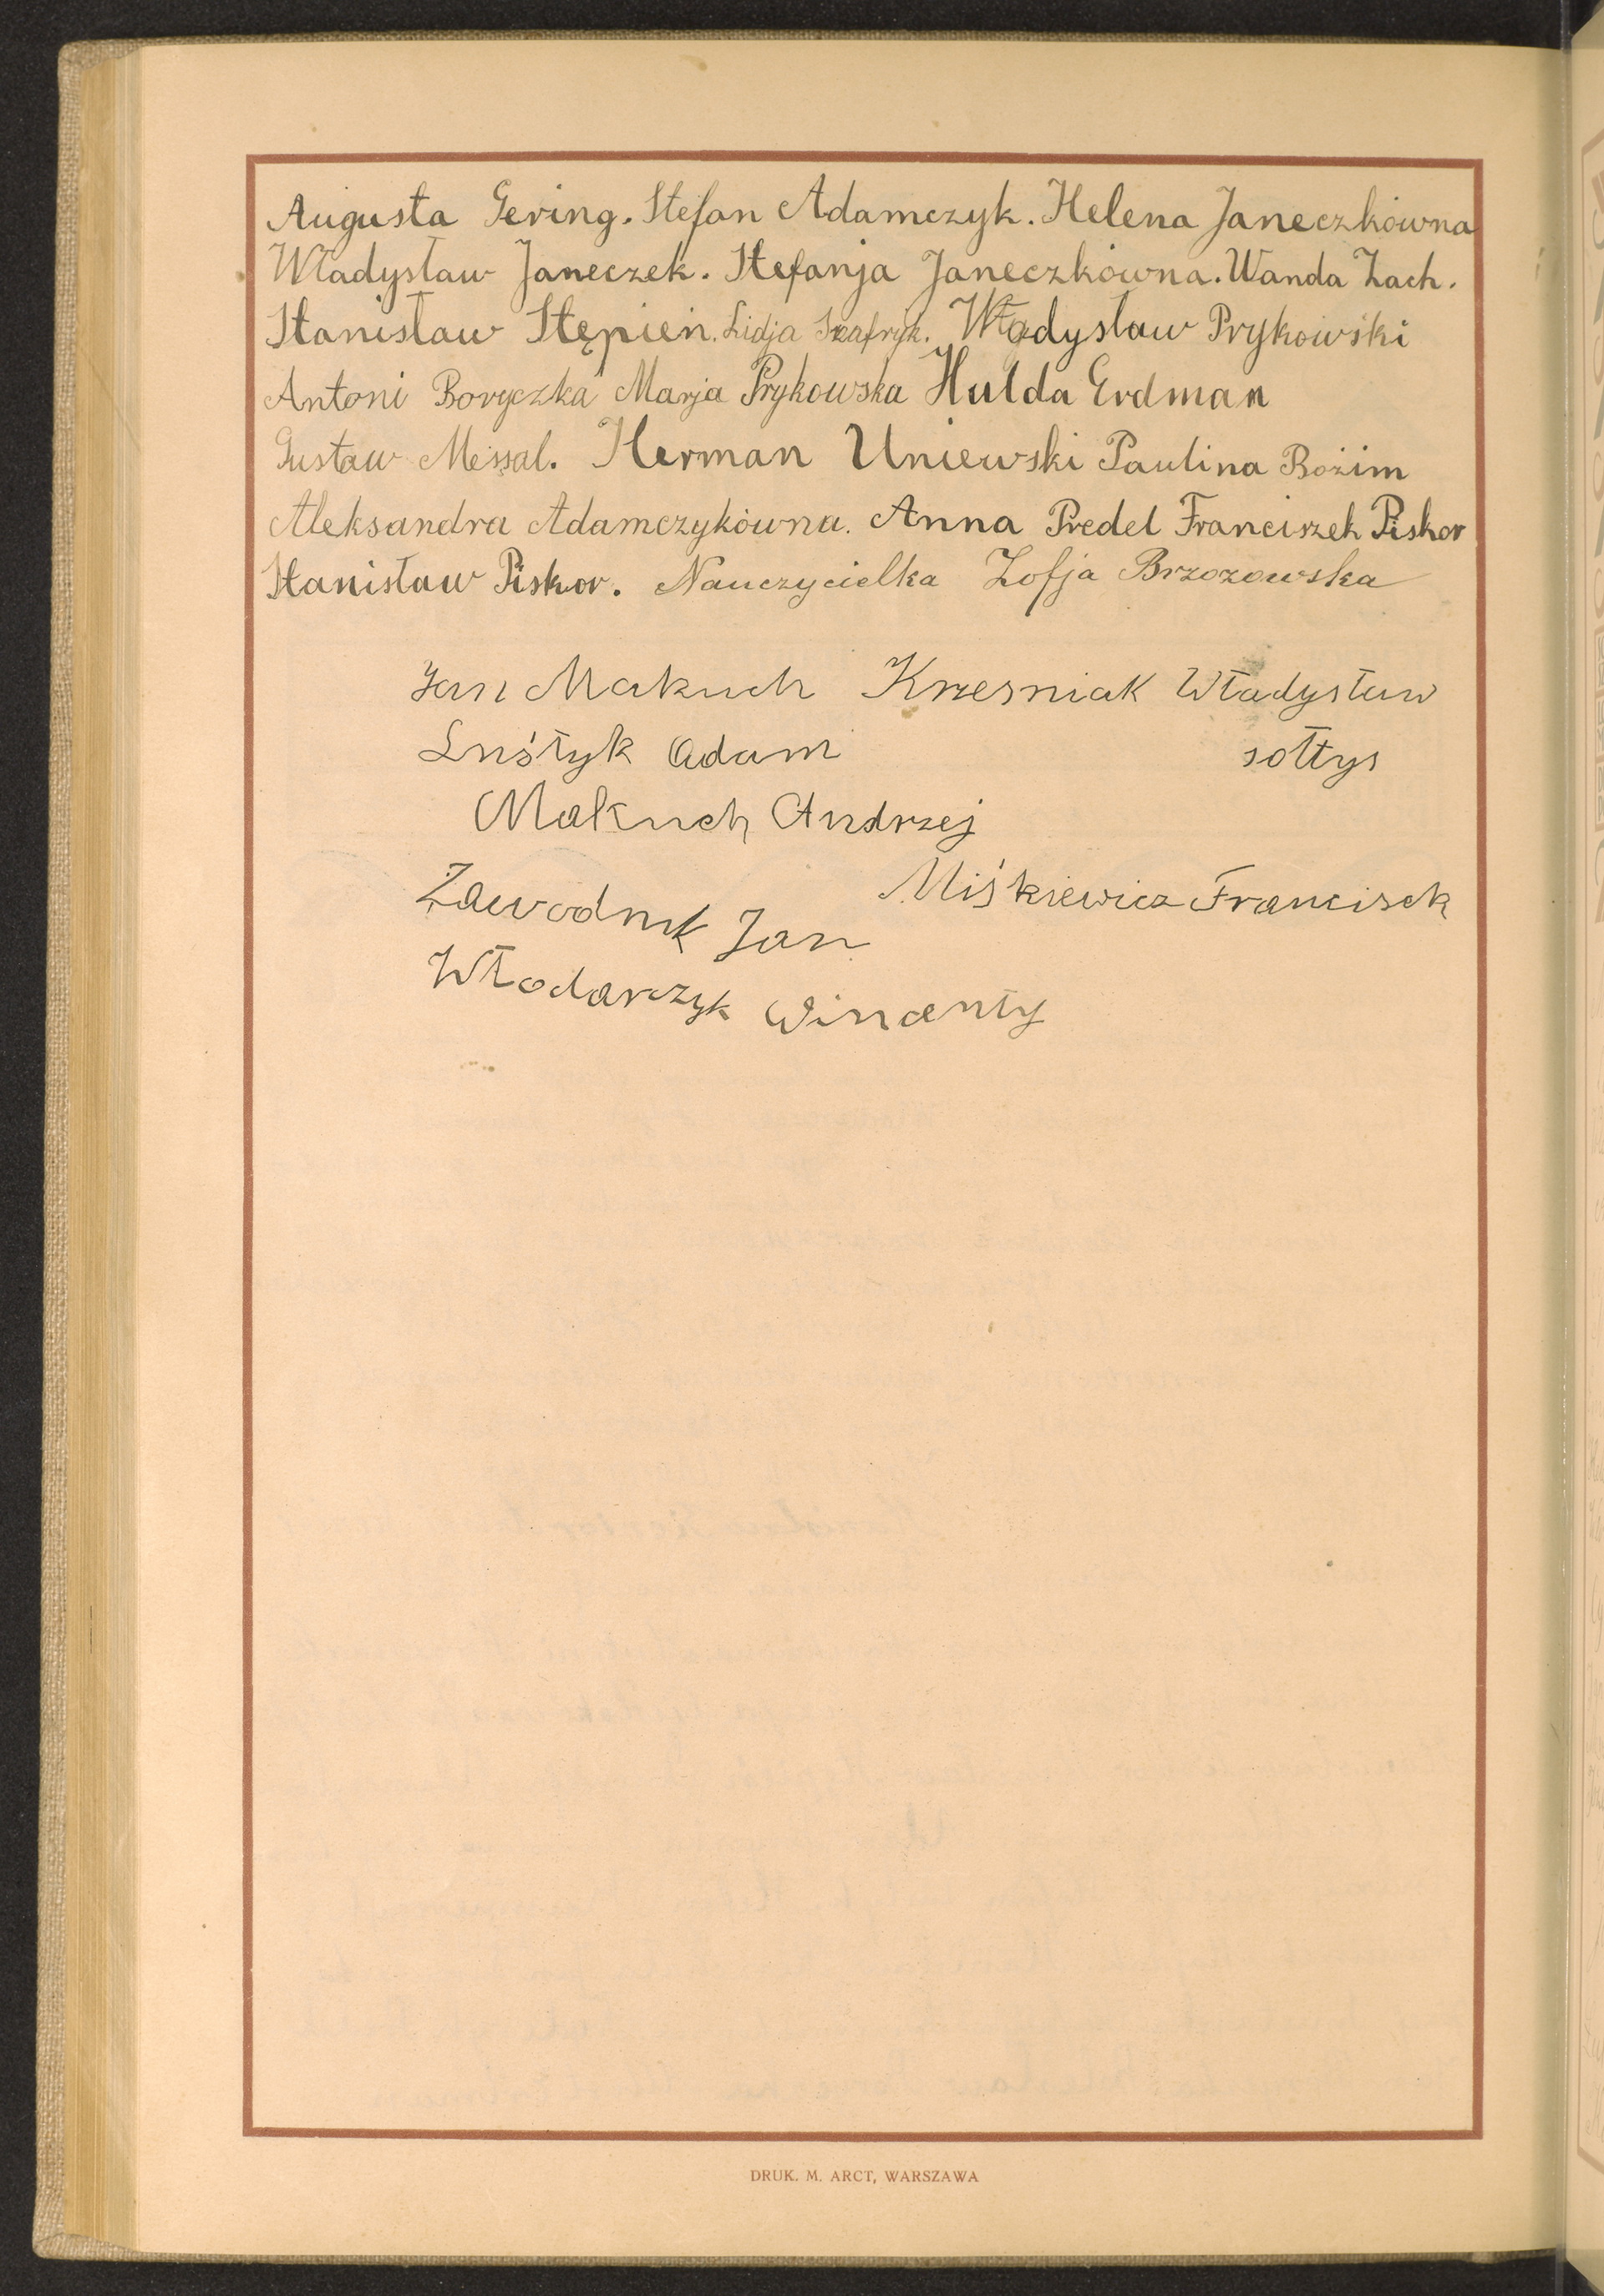 Augusta Gering. Stefan Adamczyk. Helena Janeczkówna
Władysław Janeczek. Stefanja Janeczkówna. Wanda Zach.
Stanisław Stępień. Lidja Szafryk. Władysław Prykowski
Antoni Boryczka Marja Prykowska Hulda Erdman
Gustaw Messal. Herman Uniewski Paulina Bożim
Aleksandra Adamczykówna. Anna Predel Franciszek Piskor
Stanisław Piskor. Nauczycielka Zofja Brzozowska
Jan Makuch Krzesniak Władysław
Luśtyk Adam sołtys
Makuch Andrzej
Zawodnik Jan Miśkiewicz Francisek
Włodarczyk Wincenty
DRUK. M. ARCT, WARSZAWA